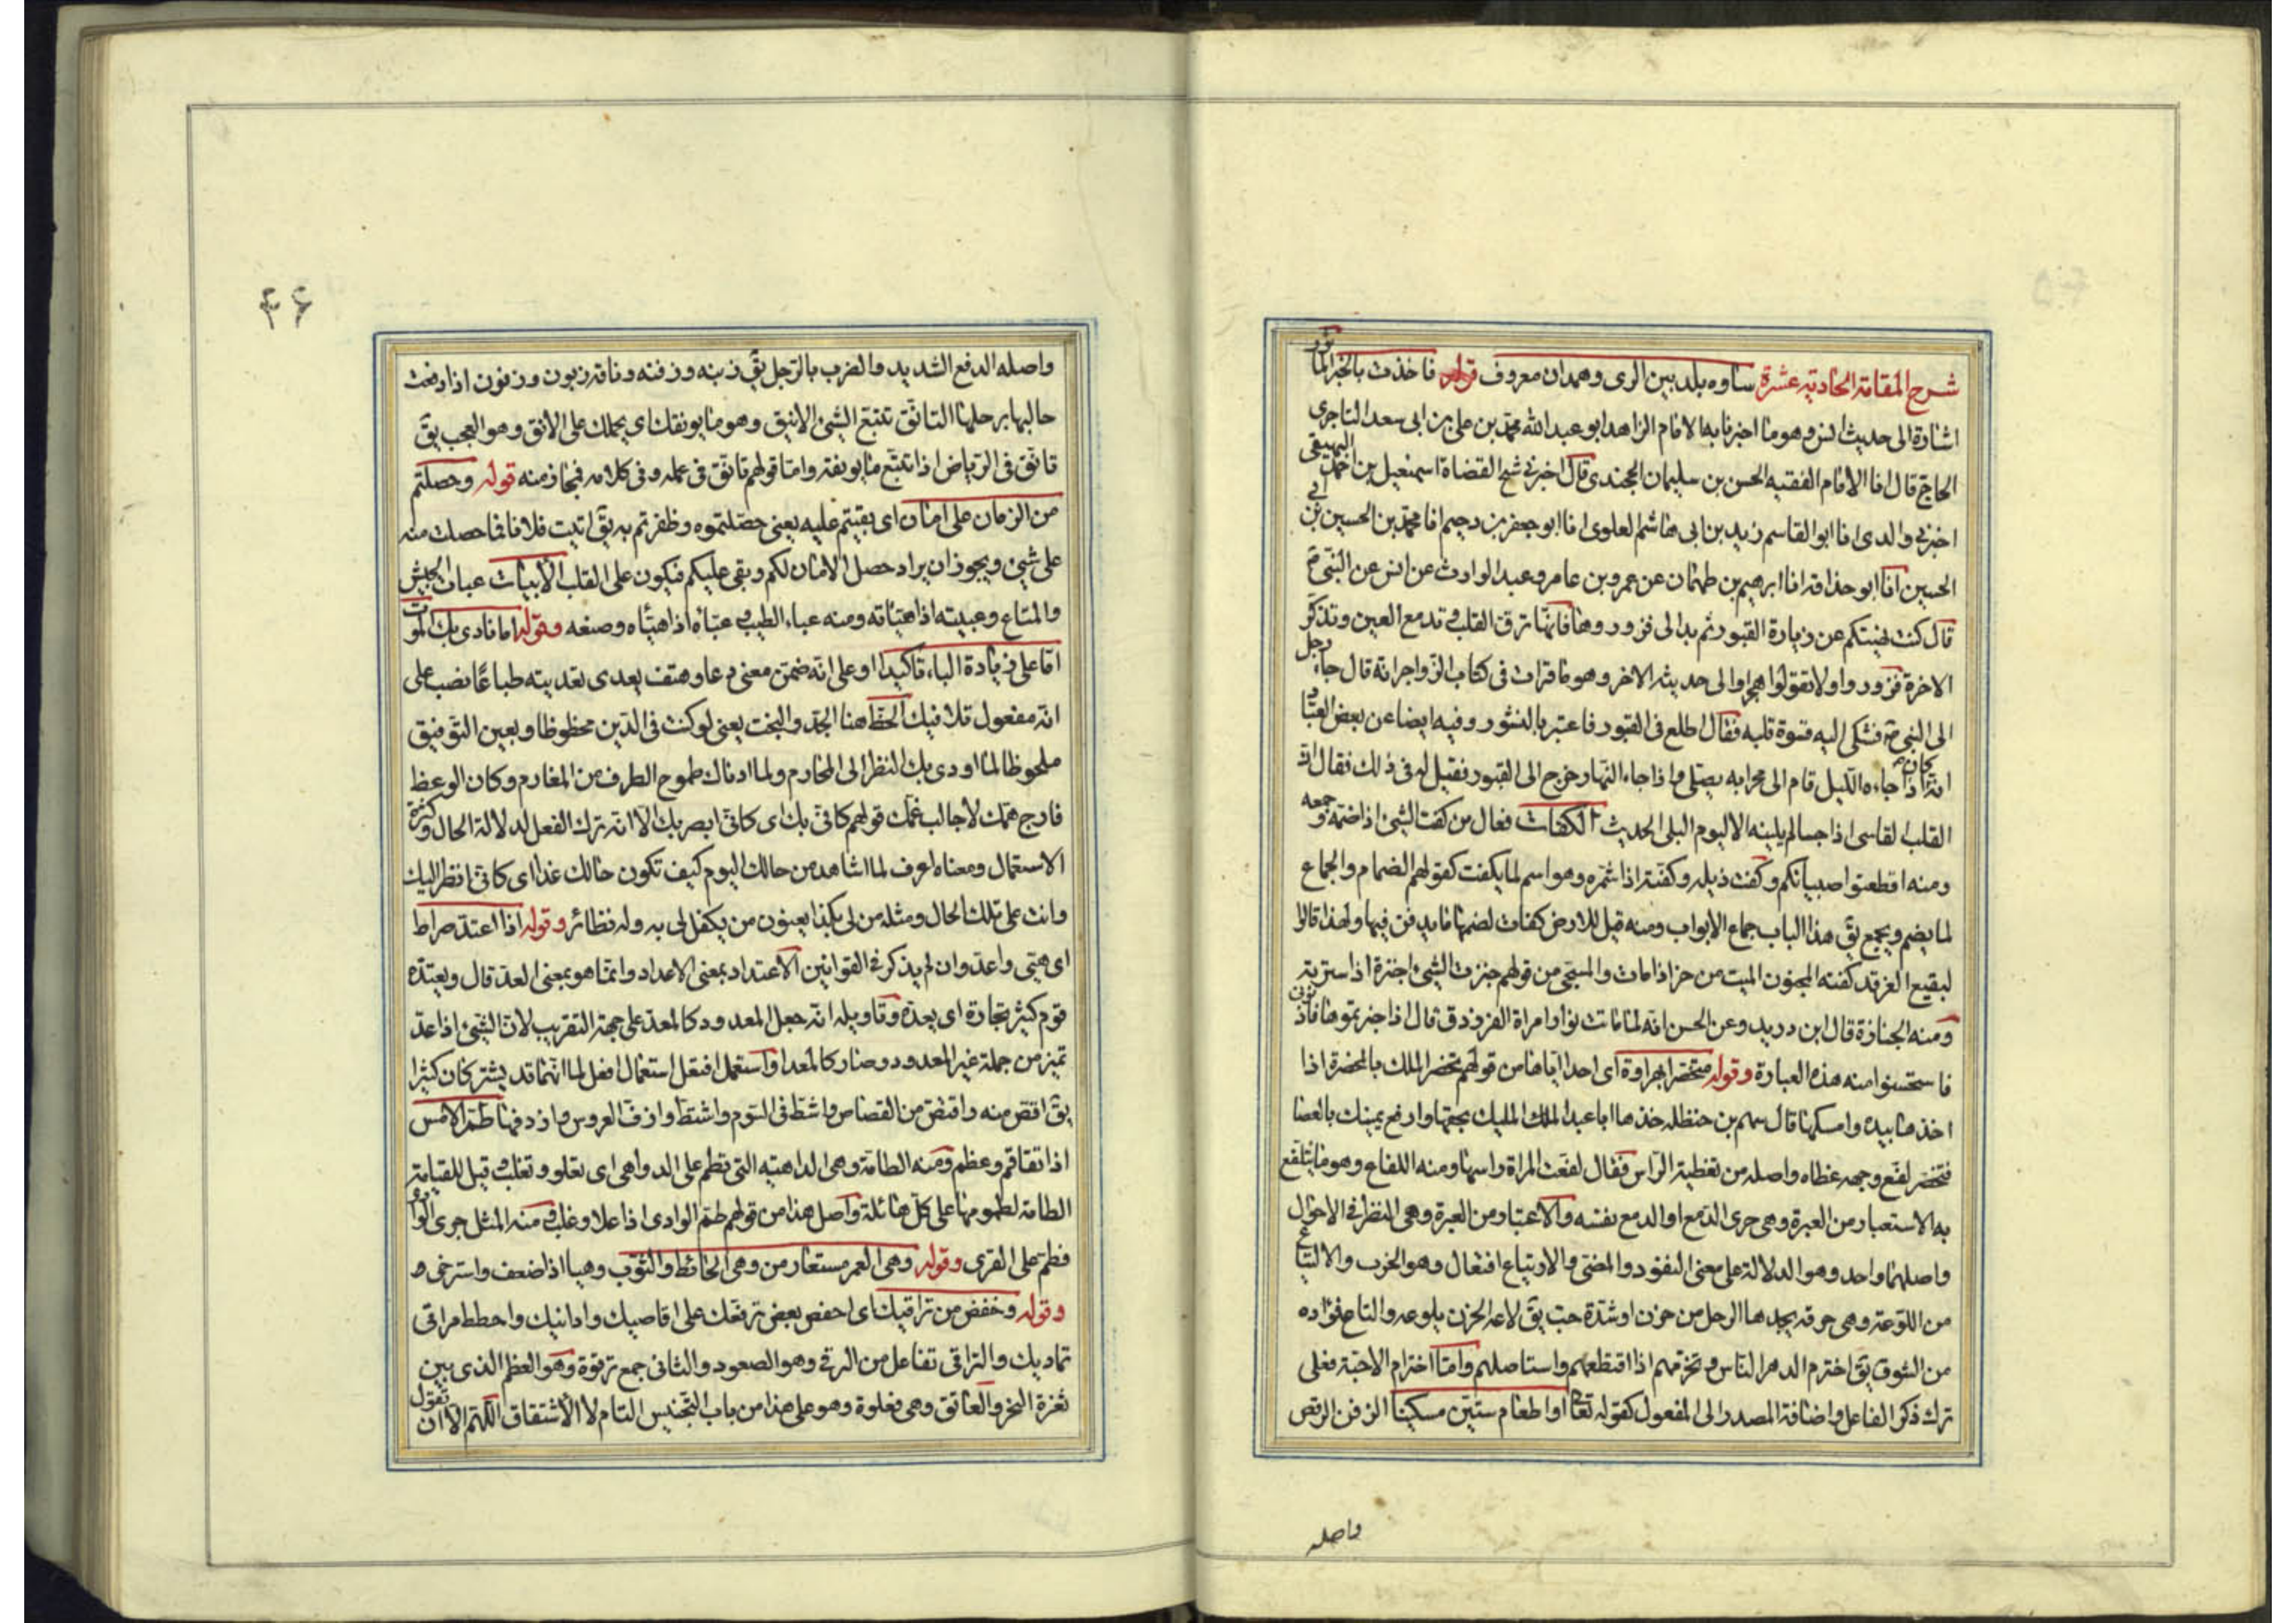 شرح المقامة الحادية عشرة ساوه بلد بين الرى وهمدان معروف قوله فاخذت بالخبر المأثور
اشارة الى حديث انس وهو ما اخبرنا به الامام الزاهد ابو عبد الله محمد بن على بن ابى سعد التاجرى
الحاج قال انا الامام الفقيه الحسن بن سليمان الخجندى قال اخبرنى شيخ القضاة اسمعيل بن احمد البيهقى
اخبرنى والدى انا ابو القاسم زيد بن ابى هاشم العلوى انا ابو جعفر بن دحيم انا محمد بن الحسين بن ابى
الحسين انا ابو حذافه انا ابرهيم بن طهمان عن عمرو بن عامر وعبد الوارث عن انس عن النبى ص
قال كنت نهيتكم عن زيارة القبور ثم بدا لى فزوروها فانها ترق القلب وتدمع العين وتذكر
الاخرة فزوروا ولا تقولوا هجرا والى حديثه الاخر وهو ما قرات فى كتاب الزواجر انه قال جاء رجل
الى النبى ص فشكى اليه قسوة قلبه فقال اطلع فى القبور فاعتبر بالنشور وفيه ايضا عن بعض العباد
انه كان اذا جاءه الليل قام الى محرابه يصلى واذا جاء النهار خرج الى القبور فقيل له فى ذلك فقال ان
القلب القاسى اذا جسا لم يلينه الا اليوم البلى الحديث الكفات فعال من كفت الشئ اذا ضمه وجمعه
ومنه اقطعتوا صبيانكم وكفت ذيله وكفته اذا شمره وهو اسم لما يكفت كقولهم الضمام والجماع
لما يضم ويجمع يق هذا الباب جماع الابواب ومنه قيل للارض كفات لضمها ما يدفن فيها ولهذا قالوا
لبقيع الغرقد كفته المجنون الميت من جنز اذا مات والمسجى من قولهم جنزت الشئ اجنزه اذا سترته
ومنه الجنازة قال ابن دريد وعن الحسن انه لما ماتت نوار امراة الفرزدق قال اذا جنزتموها فاذنونى
فاستحسنوا منه هذه العبارة وقوله متخصرا بهراوة اى احدا اياها من قولهم تخصر الملك بالمخصرة اذا
اخذها بيده وامسكها قال سهم بن حنظله خذها ابا عبد الملك المليك بحقها وارفع يمينك بالعصا
فتخصر لفع وجهه غطاه واصله من تغطية الراس فقال لفعت المراة راسها ومنه اللفاع وهو ما يتلفع
به الاستعبار من العبرة وهى جرى الدمع او الدمع نفسه والاعتبار من العبرة وهى النظر فى الاحوال
واصلهما واحد وهو الدلالة على معنى النفوذ والمضى والارتياع افتعال وهو الخرب والالتياع
من اللوعة وهى حرقة يجدها الرجل من حزن او شدة حب يق لاعه الحزن يلوعه والتاع فؤاده
من الشوق يق اخترم الدهر الناس وتخرمهم اذا اقتطعهم واستاصلهم واما اخترام الاحبة فعلى
ترك ذكر الفاعل واضافة المصدر الى المفعول كقوله تعا او اطعام ستين مسكينا الزفن الرقص
واصله
۴۶
واصله الدفع الشديد والضرب بالرجل يق زبنه وزفنه وناقة زبون وزفون اذا دفعت
حالبها برجلها التانق تتبع الشئ الانيق وهو ما يونقك اى يحملك على الانق وهو العجب يق
تانق فى الرياض اذا تتبع ما يونقه واما قولهم تانق فى عمله وفى كلامه فمجاز منه قوله وحصلتم
من الزمان على امان اى بقيتم عليه يعنى حصلتموه وظفرتم به يق اتيت فلانا فما حصلت منه
على شئ ويجوز ان يراد حصل الامان لكم وبقى عليكم فيكون على القلب الابيات عبات الجيش
والمتاع وعبيته اذا هياته ومنه عباء الطيب عباه اذا هياه وصنعه وقوله اما نادى بك الموت
اما على زيادة الباء تاكيدا او على انه ضمن معنى دعا وهتف يعدى تعديته طباعا نصب على
انه مفعول تلافيك الحظ هنا الجد والبخت يعنى لو كنت فى الدين محظوظا وبعين التوفيق
ملحوظا لما اودى بك النظر الى المحارم ولما ادناك طموح الطرف من المغارم وكان الوعظ
فارج همك لا جالب غمك قولهم كانى بك اى كانى ابصر بك الا انه ترك الفعل لدلالة الحال وكثرة
الاستعمال ومعناه اعرف لما اشاهد من حالك اليوم كيف تكون حالك غدا اى كانى انظر اليك
وانت على تلك الحال ومثله من لى بكذا يعنون من يكفل لى به وله نظائر وقوله اذا اعتد صراط
اى هيئ واعد وان لم يذكر فى القوانين الاعتداد بمعنى الاعداد وانما هو بمعنى العد قال ويعتده
قوم كثير تجارة اى يعده وتاويله انه جعل المعدود كالمعد على جهة التقريب لان الشئ اذا عد
تميز من جملة غير المعدود وصار كالمعد او استعمل افتعل استعمال افعل لما انهما قد يشتركان كثيرا
يق اقص منه واقتص من القصاص واشط فى السوم واشتط وازف العروس وازدفها طم الامس
اذا تفاقم وعظم ومنه الطامة وهى الداهية التى تطم على الدواهى اى تعلو وتغلب وقيل للقيامة
الطامة لطمومها على كل هائلة واصل هذا من قولهم طم الوادى اذا علا وغلب ومنه المثل جرى الوادى
فطم على القرى وقوله وهى العمر مستعار من وهى الحائط والثوب وهيا اذا ضعف واسترخى ه
وقوله وخفض من تراقيك اى اخفض بعض ترفعك على اقاصيك وادانيك واحطط مراقى
تماديك والتراقى تفاعل من الرقى وهو الصعود والثانى جمع ترقوة وهو العظم الذى بين
ثغرة النحر والعاتق وهى فعلوة وهو على هذا من باب التجنيس التام لا الاشتقاق اللهم الا ان تقول